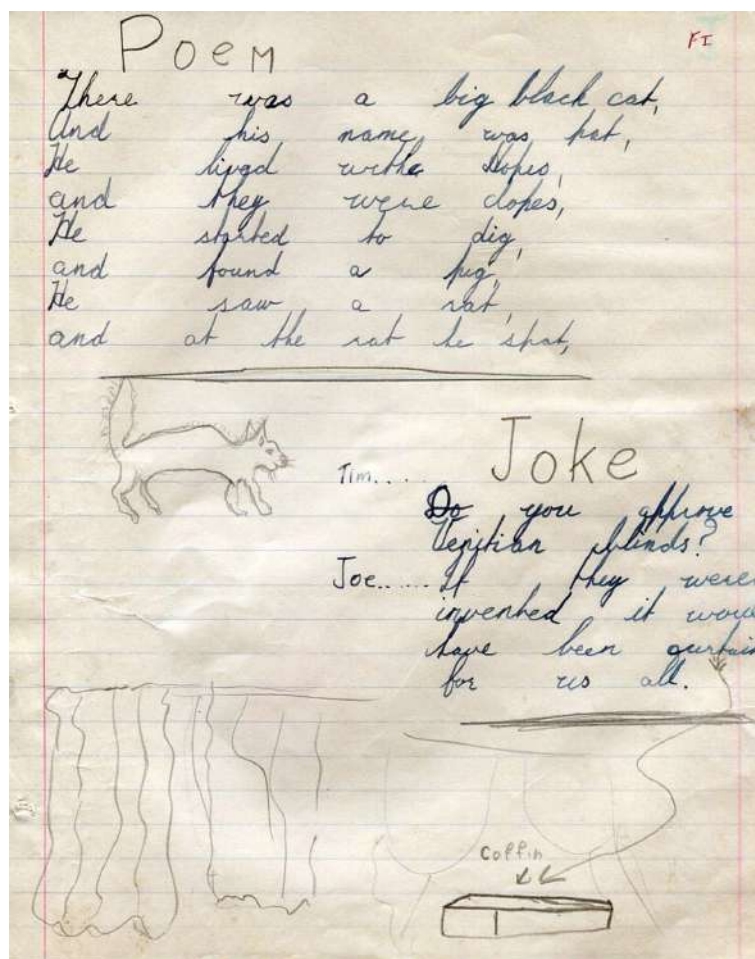 Poem
FI
There was a big black cat,
And his name was pat,
He lived with
and they were dopes,
He started to dig,
and found a pig,
He saw a rat,
and at the rat he spat,
Joke
Tim.....
Do you approve
Venitian blinds?
Joe...... If they were
invented it wou
have been curtain
for us all.
Coffin